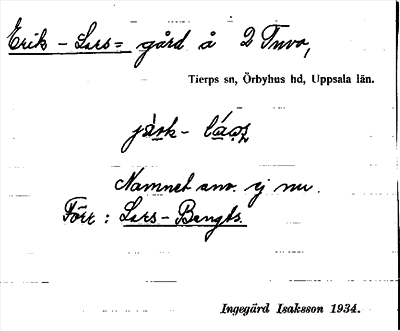 Erik-Lars= gård å 2 Tuvo,
Tierps sn, Örbyhus hd, Uppsala län.
Namnet anv. ej nu.
Förr: Lars-Bengts.
Ingegärd Isaksson 1934.